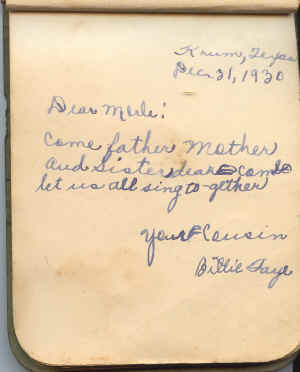 Krum, Texas
Dec. 31, 1930
Dear Merle!
Come father Mother
and Sister dear come
let us all sing to-gether
Your Cousin
Billie Faye